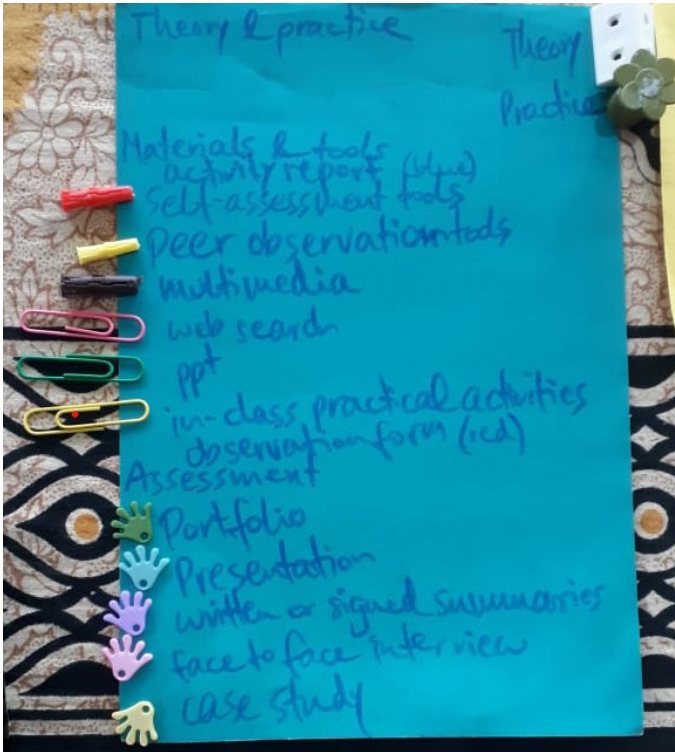 Theory & practice
Theory
Practice
Materials & tools
activity report (blue)
self-assessment tools
peer observation tools
multimedia
web search
ppt
in-class practical activities
observation form (red)
Assessment
Portfolio
Presentation
written or signed summaries
face to face interview
case study